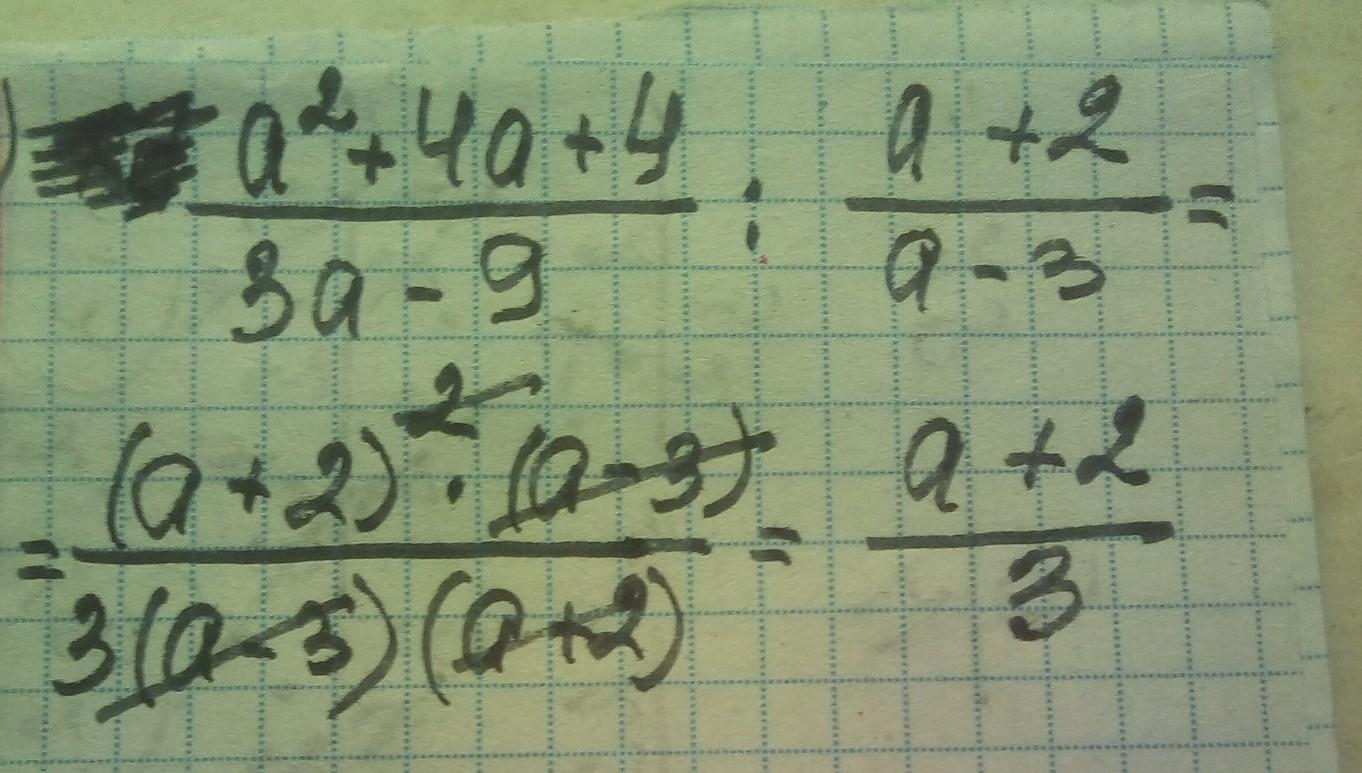 a² + 4a + 4 / 3a - 9 : a + 2 / a - 3 =
= (a + 2)² · (a - 3) / 3(a - 3)(a + 2) = a + 2 / 3